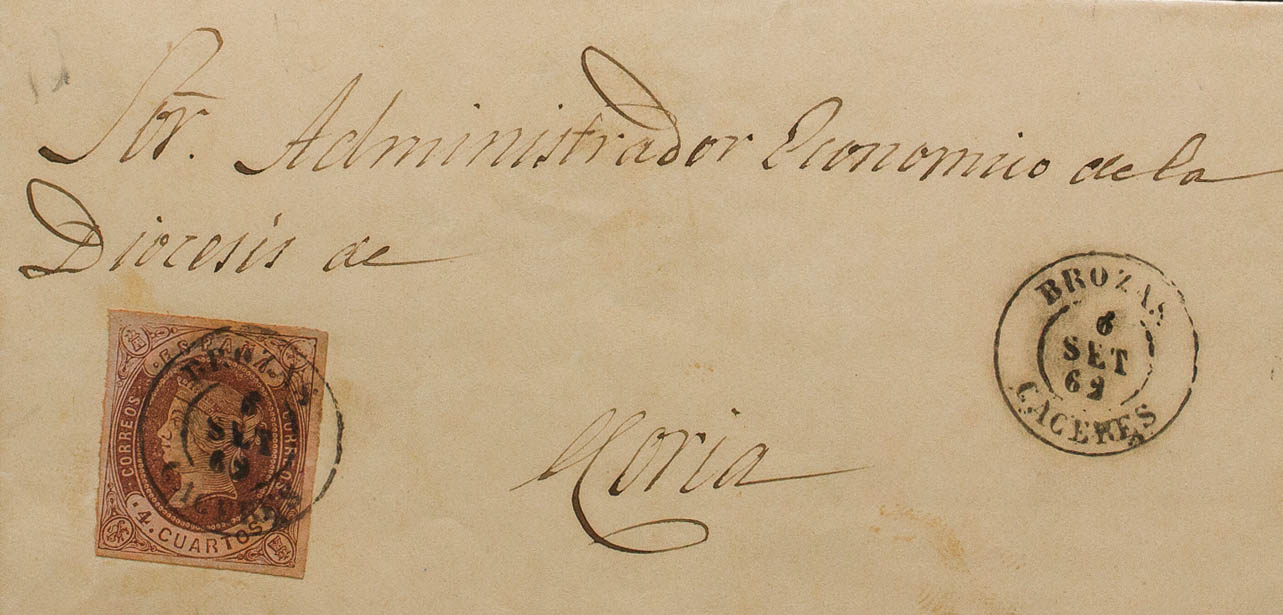 Sor. Administrador Economico de la
Diocesis de
Coria
BROZAS
6
SET
62
CACERES
ESPAÑA
CORREOS
CORREOS
4. CUARTOS
BROZAS
6
SET
62
CACERES